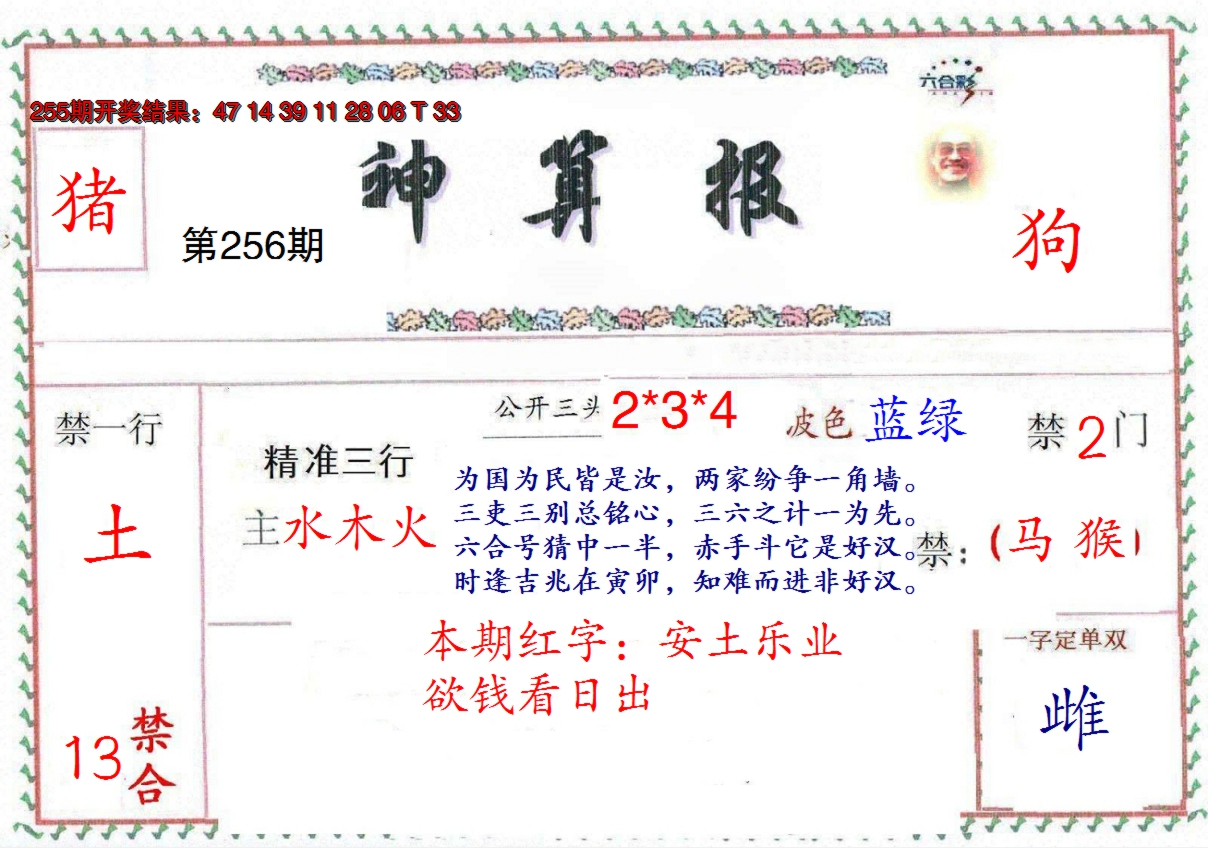 六合彩
255期开奖结果：47 14 39 11 28 06 T 33
猪
第256期
神算报
狗
禁一行
土
13禁合
精准三行
主水木火
公开三头 2*3*4
波色 蓝绿
禁2门
为国为民皆是汝，两家纷争一角墙。
三吏三别总铭心，三六之计一为先。
六合号猜中一半，赤手斗它是好汉。
时逢吉兆在寅卯，知难而进非好汉。
禁：（马 猴）
本期红字：安土乐业
欲钱看日出
一字定单双
雌